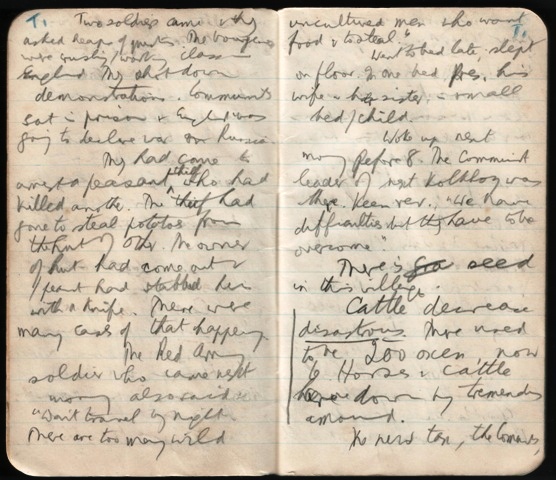 T.
Two soldiers came & they
asked heaps of questions. The bourgeois
were crushing working class in
England. They shot down
demonstrations. Communists
sat in prison & England was
going to declare war on Russia.
They had come to
arrest a peasant thief who had
killed another. The thief had
gone to steal potatoes from
the hut of other. The owner
of hut had come out &
peasant had stabbed him
with a knife. There were
many cases of that happening
The Red Army
soldier who came next
morning also said:
"Don't travel by night.
There are too many wild
uncultured men who want
food & to steal."
T.
Went to bed late, slept
on floor. In one bed Pres, his
wife & her sister, in small
bed/child.
Woke up next
morning before 8. The Communist
leader of next Kolkhoz was
there. Keen rev. "We have
difficulties but they have to be
overcome"
There is seed
in this village.
Cattle decrease
disastrous. There used
to be 200 oxen, now
6. Horses & cattle
down by tremendous
amount.
The new tax, the Communists,